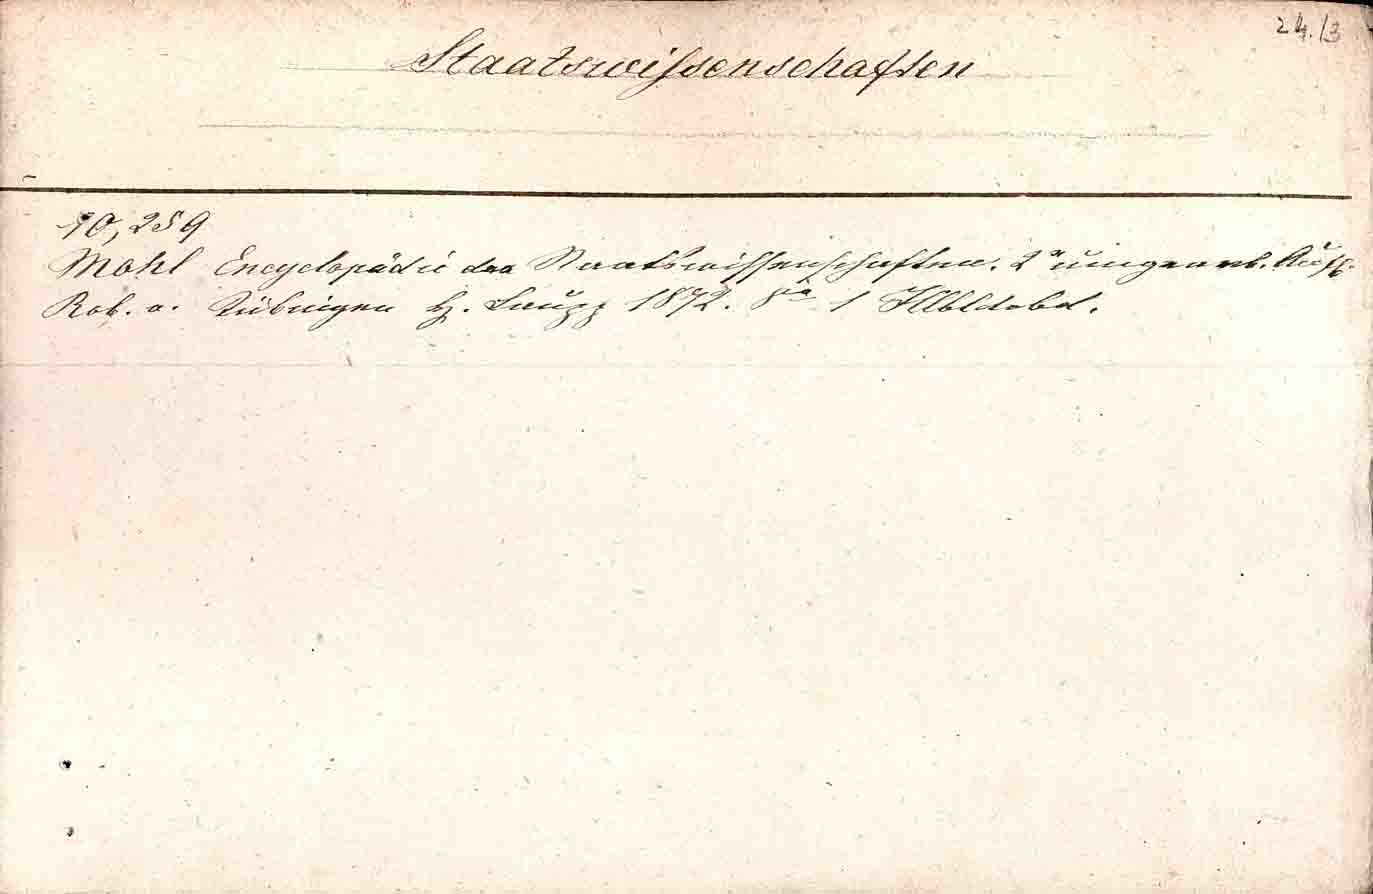 24./3
Staatswissenschaften
10,259
Mohl Encyclopädie der Staatswissenschaften. 2e umgearb. Aufl.
Rob. v. Tübingen H. Laupp 1872. 8vo 1 Hlbldrbd.